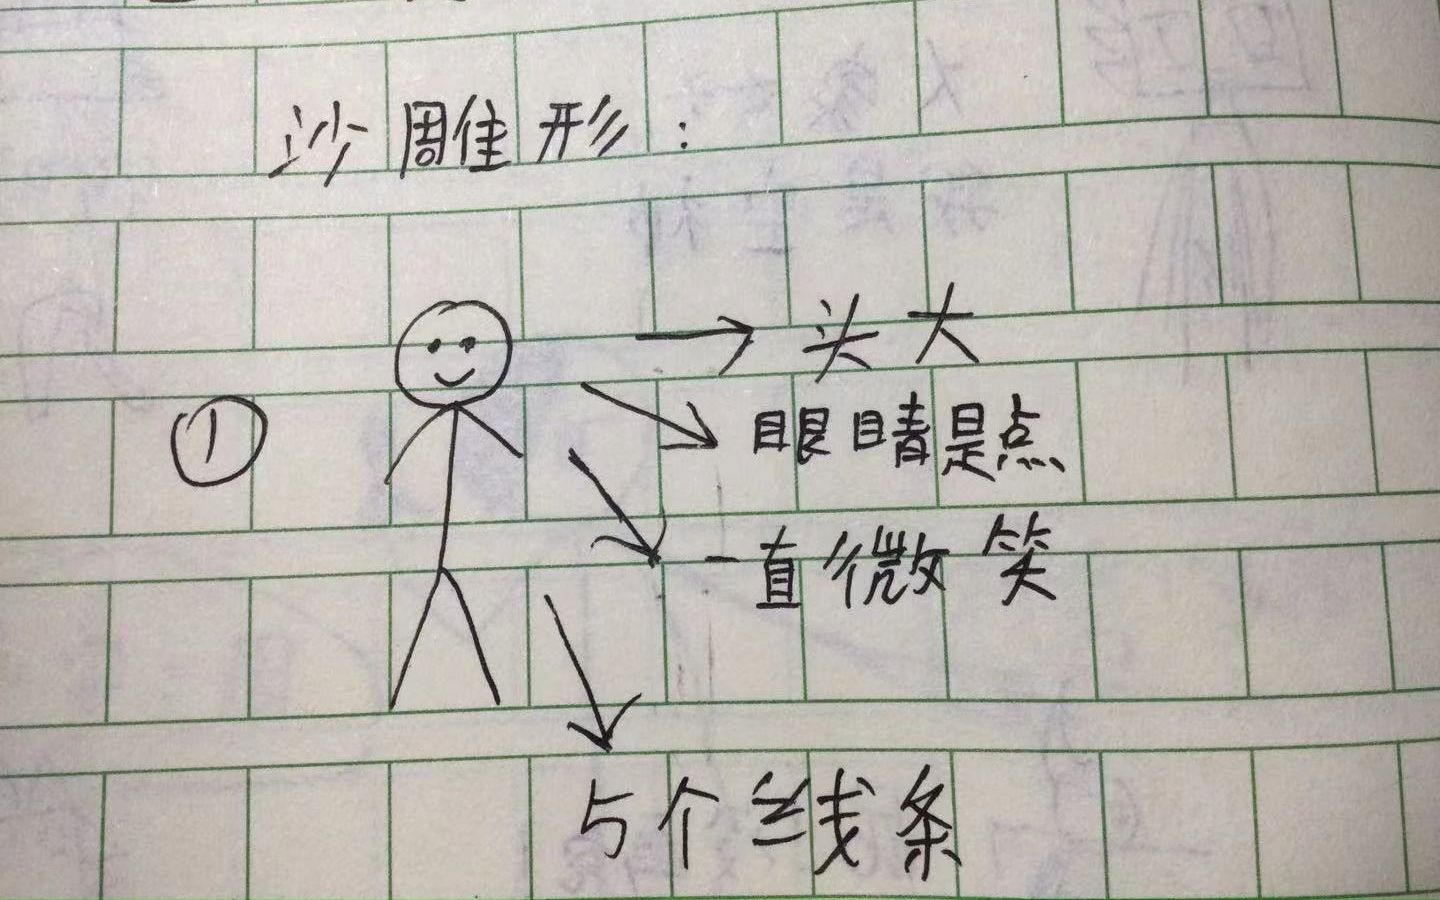 沙雕形：
头大
①
眼睛是点
一直微笑
5个线条